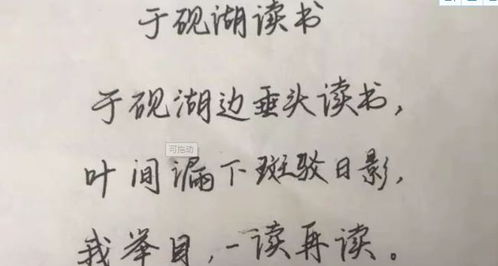 于砚湖读书
于砚湖边垂头读书，
叶间漏下斑驳日影，
可拖动
我举目，一读再读。